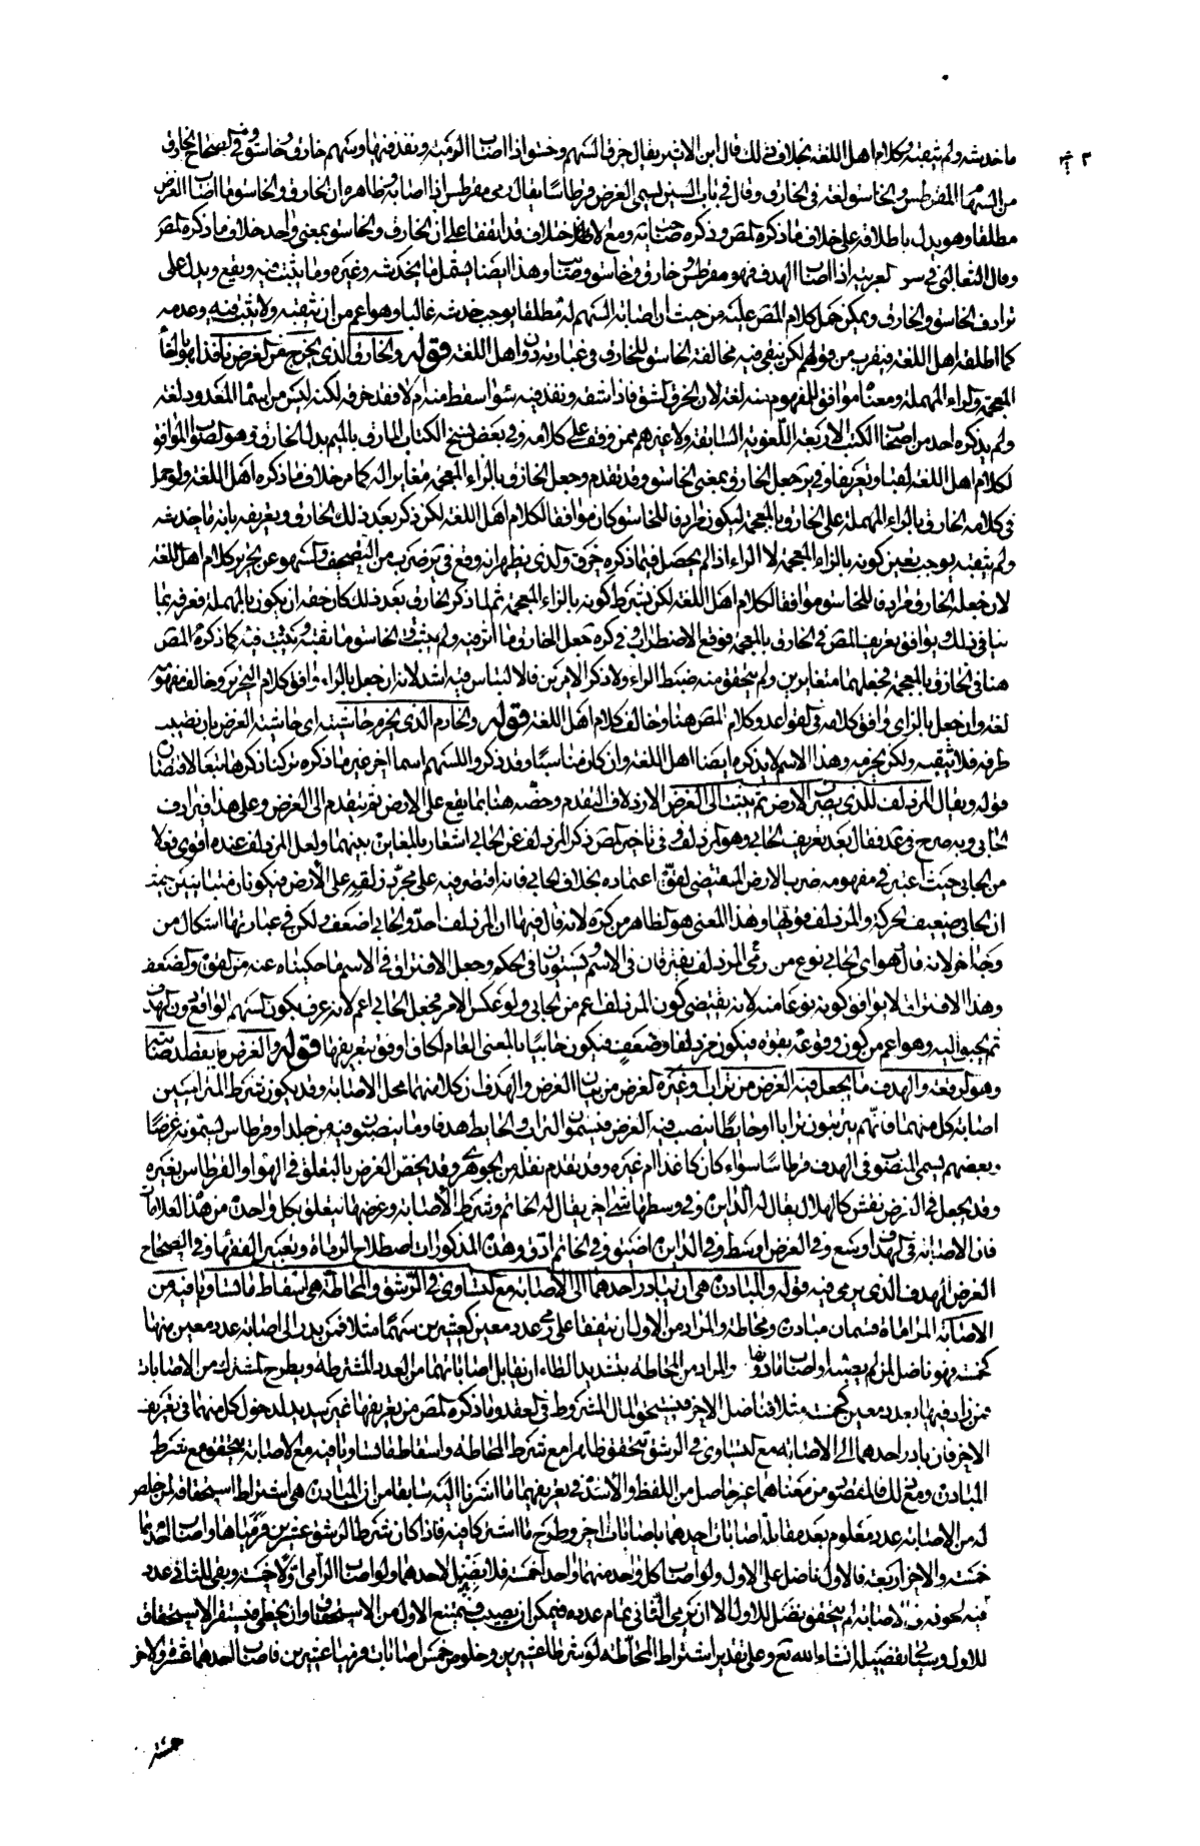 ما خدشه ولم يثقبه وكلام اهل اللغة بخلاف ذلك قال ابن الاثير يقال خزق السهم وخسق اذا اصاب الرمية ونفذ فيها وسهم خازق وخاسق وفي الصحاح الخازق
من السهام المقرطس والخاسق لغة في الخازق وقال في باب السين يسمى الغرض قرطاسا يقال رمى فقرطس اذا اصابه وظاهره ان الخازق والخاسق ما اصاب الغرض
مطلقا وهو يدل باطلاقه على خلاف ما ذكره المص وذكره صاحبايه ومع الاختلاف قد اتفقا على ان الخازق والخاسق بمعنى واحد خلاف ما ذكره المص
وقال الثعالبي في سر العربية اذا اصاب الهدف فهو مقرطس وخازق وخاسق وصائب وهذا ايضا يشمل ما يخدشه وغيره وما يثبت فيه ويقع ويدل على
ترادف الخاسق والخازق ويمكن حمل كلام المص عليه من حيث ان اصابة السهم له مطلقا يوجب خدشه غالبا وهو اعم من ان يثقبه ولا يثبت فيه وعدمه
كما اطلقه اهل اللغة فيقرب من قولهم لكن يبقى فيه مخالفة الخاسق للخازق في عبارته دون اهل اللغة قوله والخارق الذي يخرج من الغرض نافذا هو بالخاء
المعجمة والراء المهملة ومعناه موافق للمفهوم منه لغة لان الخرق الشق فاذا شقه ونفذ فيه سواء سقط منه ام لا فقد خرقه لكنه ليس من اسماء المعدود لغة
ولم يذكره احد من اصحاب الكتب الاربعة اللغوية السابقة ولا غيرهم ممن وقفت على كلامه وفي بعض نسخ الكتاب المارق بالميم بدل الخارق وهو الصواب الموافق
لكلام اهل اللغة لفظا وتعريفا وفي ير جعل الخارق بمعنى الخاسق وقد تقدم وجعل الخازق بالزاء المعجمة مغايرا له كما مر خلاف ما ذكره اهل اللغة ولو حمل
في كلامه الخارق بالراء المهملة على الخازق بالمعجمة ليكون مرادفا للخاسق كان موافقا لكلام اهل اللغة لكن ذكر بعد ذلك الخازق وتعريفه بانه ما خدشه
ولم يثقبه يوجب تعين كونه بالزاء المعجمة لا الراء اذا لم يحصل فيما ذكره خرق والذي يظهر انه وقع في ير ضرب من التصحيف والسهو عن تحرير كلام اهل اللغة
لان جعله الخارق مرادفا للخاسق موافقا لكلام اهل اللغة لكن بشرط كونه بالزاء المعجمة ثم لما ذكر الخازق بعد ذلك كان حقه ان يكون بالمهملة فعرفه بما
ينافي ذلك ويوافق تعريف المص في الخازق بالمعجمة فوقع الاضطراب وفي كره جعل الخازق ما اثر فيه ولم يثبت والخاسق ما ثقبه وثبت فيه كما ذكره المص
هنا في الخازق بالمعجمة فجعلهما متغايرين ولم يتحقق منه ضبط الراء ولا ذكر الامرين فالالتباس فيه اشد لانه ان جعل بالراء وافق كلام التحرير وخالف مفهومه
لغة وان جعل بالزاي وافق كلامه في القواعد وكلام المص هنا وخالف كلام اهل اللغة قوله والخارم الذي يخرم حاشيته اي حاشية الغرض بان يصيب
طرفه فلا يثقبه ولكن يخرمه وهذا الاسم لا يذكره ايضا اهل اللغة وان كان مناسبا وقد ذكروا للسهم اسما اخر غير ما ذكره تركنا ذكرها تبعا لاقتصار
قوله ويقال المزدلف للذي يضرب الارض ثم يثب الى الغرض الازدلاف التقدم وخصه هنا بما يقع على الارض ثم يتقدم الى الغرض وعلى هذا فيرادف
الحابي وبه صرح في عد فقال بعد تعريف الحابي وهو المزدلف وفي تاخير المص ذكر المزدلف عن الحابي اشعار بالمغايرة بينهما ولعل المزدلف عنده اقوى فعلا
من الحابي حيث اعتبر في مفهومه ضرب الارض المقتضي لقوة اعتماده بخلاف الحابي فانه اقتصر فيه على مجرد زلقه على الارض فيكونان متباينين حينئذ
ان الحابي ضعيف الحركة والمزدلف قويها وهذا المعنى هو الظاهر من كره لانه قال فيها ان المزدلف احد والحابي اضعف ولكن في عبارتها اشكال من
وجه اخر لانه قال هو اي الحابي نوع من رمي المزدلف يفترقان في الاسم ويستويان في الحكم وجعل الافتراق في الاسم ما حكيناه عنه من القوة والضعف
وهذا الافتراق لا يوافق كونه نوعا منه لانه يقتضي كون المزدلف اعم من الحابي ولو عكس الامر فجعل الحابي اعم لانه عرفه بكون السهم الواقع دون الهدف
ثم يحبو اليه وهو اعم من كون وقوعه بقوة فيكون مزدلفا وضعف فيكون حابيا بالمعنى العام لكان اوفق بتعريفها قوله والغرض ما يقصد اصابته
وهو الرقعة والهدف ما يجعل فيه الغرض من تراب وغيره الغرض من بيان الغرض والهدف ان كلا منهما محل الاصابة وقد يكون شرط المتراميين
اصابة كل منهما فانهم يرتبون ترابا او حايطا ينصب فيه الغرض فيسمون التراب والحايط هدفا وما ينصبون فيه من جلد او قرطاس يسمونه غرضا
وبعضهم يسمي المنصوب في الهدف قرطاسا سواء كان كاغذا ام غيره وقد تقدم نقله من الجوهري وقد يخص الغرض بالمعلق في الهواء والقرطاس بغيره
وقد يجعل في الغرض نقش كالهلال يقال له الداير وفي وسطها شيء اخر يقال له الخاتم وشرط الاصابة وغرضها يتعلق بكل واحد من هذه العلامات
فان الاصابة في الهدف اوسع وفي الغرض اوسط وفي الداير اضيق وفي الخاتم ادق وهذه المذكورات اصطلاح الرماة وتعبير الفقهاء وفي الصحاح
الغرض الهدف الذي يرمى فيه قوله والمبادرة هي ان يبادر احدهما الى الاصابة مع التساوي في الرشق والمحاطة هي اسقاط ما تساويا فيه من
الاصابة المراماة قسمان مبادرة ومحاطة والمراد من الاول ان يتفقا على رمي عدد معين كعشرين سهما مثلا فمن بدر الى اصابة عدد معين منها
كخمسة فهو ناضل لمن لم يصب او اصاب ما دونها والمراد من المحاطة بتشديد الطاء ان يقابل اصاباتهما من العدد المشترطة ويطرح المشترك من الاصابات
فمن زاد فيها بعدد معين كخمسة مثلا فناضل الاخر فيستحق المال المشروط في العقد وما ذكره المص من تعريفها غير سديد لدخول كل منهما في تعريف
الاخر فان بادر احدهما الى الاصابة مع التساوي في الرشق يتحقق ظاهرا مع شرط المحاطة واسقاط ما تساويا فيه مع الاصابة يتحقق مع شرط
المبادرة ومع ذلك فالمقصود من معناهما غير حاصل من اللفظ والاسد في تعريفهما ما اشرنا اليه سابقا من ان المبادرة هي اشتراط استحقاق لمن خلص
له من الاصابة عدد معلوم بعد مقابلة اصابات احدهما باصابات الاخر وطرح ما اشتركا فيه فاذا كان شرط الرشق عشرين فرمياها واصاب احدهما
خمسة والاخر اربعة فالاول ناضل على الاول ولو اصاب كل واحد منهما واحد خمسة فلا يفضل لاحدهما ولو اصاب الرامي اولا خمسة وبقي للثاني عدد
فيه لحوقه في الاصابة لم يتحقق نضل للاول الا ان يرمي الثاني تمام عدده فيمكن ان يصيب فيمتنع الاول من الاستحقاق وان يخطي فيستقر الاستحقاق
للاول وسياتي تفصيله انشاء الله تع وعلى تقدير اشتراط المحاطة لو شرطا عشرين وخلوص خمس اصابات فرميا عشرين فاصاب احدهما عشرة والاخر
خمسة